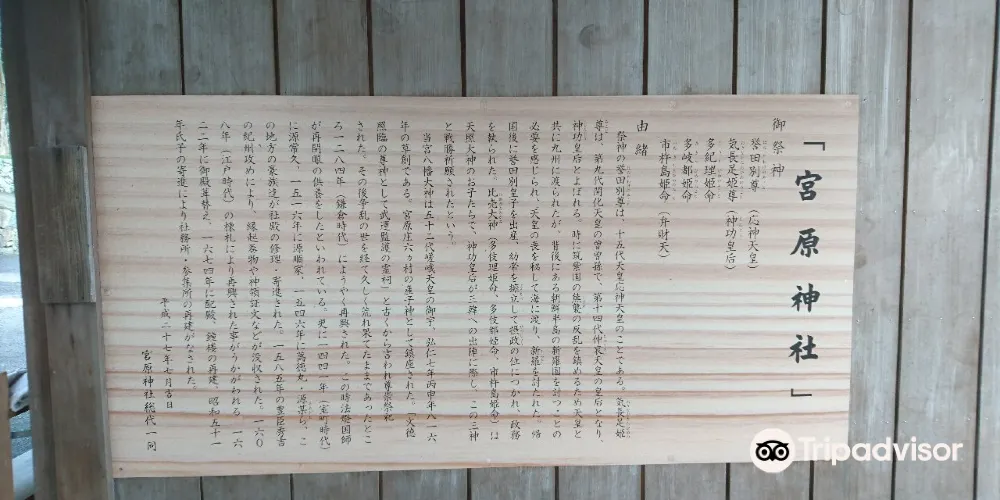 「宮原神社」
御祭神
誉田別尊 (応神天皇)
気長足姫尊 (神功皇后)
多紀理姫命
多岐都姫命
市杵島姫命 (弁財天)
由緒
祭神の誉田別尊は、十五代天皇応神天皇のことである。気長足姫
尊は、第九代開化天皇の曽孫で、第十四代仲哀天皇の皇后となり、
神功皇后とよばれる。時に筑紫国の熊襲の反乱を鎮めるため天皇と
共に九州に渡られたが、背後にある朝鮮半島の新羅国を討つことの
必要を感じられ、天皇の喪を秘して海に渡り、新羅を討たれた。帰
国後に誉田別皇子を出産、幼帝を擁立して摂政の位につかれ、政務
を執られた。比売大神(多伎理姫命、多岐都姫命、市杵島姫命)は
天照大神のお子たちで、神功皇后が三韓への出陣に際し、この三神
と戦勝祈願されたという。
当宮八幡大神は五十二代嵯峨天皇の御宇、弘仁七年丙申年八一六
年の草創である。宮原庄六ヵ村の産子神として鎮座された。「文徳
照臨の尊神として武運監護の霊祠」と古くから言われ尊崇祭祀
された。その後争乱の世を経て久しく荒れ果てたままであったとこ
ろ一二八四年(鎌倉時代)にようやく再興された。この時法燈国師
が再開眼の供養をしたといわれている。更に一四四一年(室町時代)
に源常久、一五一六年に源順家、一五四六年に萬徳丸・源某ら、こ
の地方の豪族達が社殿の修理・寄進された。一五八五年の豊臣秀吉
の紀州攻めにより、縁起巻物や神領証文などが没収された。一六〇
八年(江戸時代)の棟札により再興された事がうかがわれる。一六
二二年に御殿葺替え、一六七四年に配殿、鐘楼の再建、昭和五十一
年氏子の寄進により社務所・参籠所の再建がなされた。
平成二十七年七月吉日
宮原神社総代一同
Tripadvisor